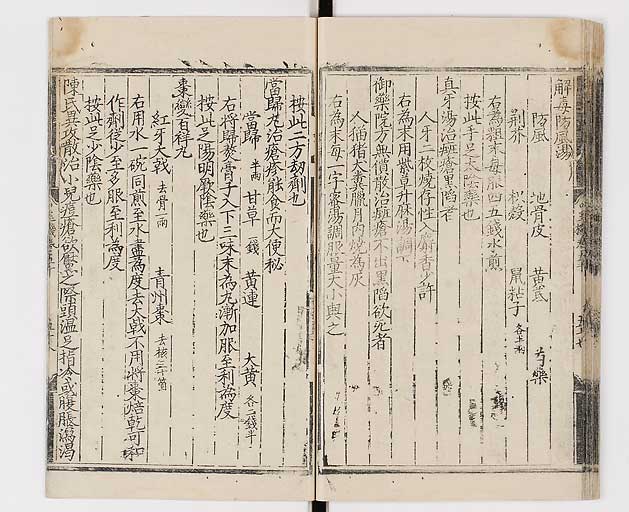 解毒防風湯
防風 地骨皮 黃芪 芍藥
荊芥 枳殼 鼠粘子 各等分
右為麄末每服四五錢水煎
按此手足太陰藥也
真牙湯治癍瘡黑陷者
人牙二枚燒存性入麝香少許
右為末用紫草升麻湯調下
御藥院方無價散治癍瘡不出黑陷欲死者
人猫猪犬糞臘月內燒為灰
右為末每一字蜜湯調服量大小與之
按此二方劫劑也
當歸丸治瘡疹能食而大便秘
當歸 半兩 甘草 一錢 黃連 大黃 各二錢半
右將歸熬膏子入下三味末為丸漸加服至利為度
按此足陽明厥陰藥也
棗變百祥丸
紅牙大戟 去骨一兩 青州棗 去核三十箇
右用水一碗同煎至水盡為度去大戟不用將棗焙乾可和
作劑從少至多服至利為度
按此足少陰藥也
陳氏異攻散治小兒痘瘡欲靨之際頭溫足指冷或腹脹瀉渴